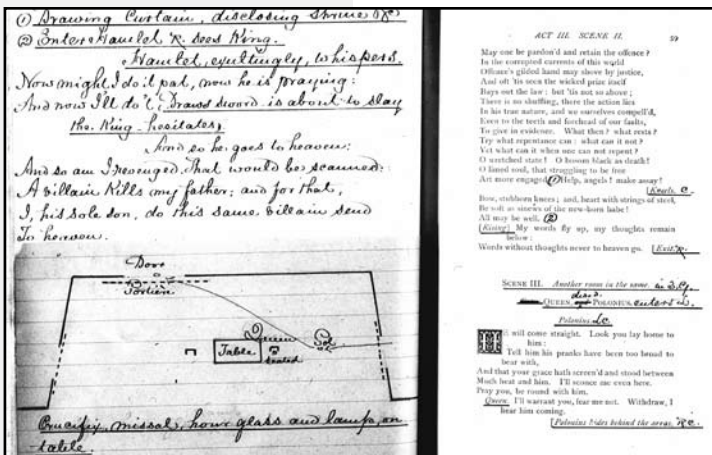 ① Drawing Curtain, disclosing Shrine &c
② Enter Hamlet R. sees King.
Hamlet, exultingly, whispers.
Now might I do it pat, now he is praying:
And now I'll do't, Draws sword is about to slay
the King - hesitates,
And so he goes to heaven:
And so am I revenged. That would be scanned:
A villain kills my father; and for that,
I, his sole son, do this same villain send
To heaven.
Door
Portière
Queen
Table
seated
Pol
Crucifix, missal, hour glass and lamp, on
table.
ACT III. SCENE II. 99
May one be pardon'd and retain the offence?
In the corrupted currents of this world
Offence's gilded hand may shove by justice,
And oft 'tis seen the wicked prize itself
Buys out the law: but 'tis not so above;
There is no shuffling, there the action lies
In his true nature, and we ourselves compell'd,
Even to the teeth and forehead of our faults,
To give in evidence. What then? what rests?
Try what repentance can: what can it not?
Yet what can it when one can not repent?
O wretched state! O bosom black as death!
O limed soul, that struggling to be free
Art more engaged! ① Help, angels! make assay!
[Kneels. C.
Bow, stubborn knees; and, heart with strings of steel,
Be soft as sinews of the new-born babe!
All may be well. ②
[Rising] My words fly up, my thoughts remain
below:
Words without thoughts never to heaven go. [Exit. R.
SCENE III. Another room in the same. in 3.G.
disc'd.
QUEEN, POLONIUS, enters L.
Polonius L.C.
He will come straight. Look you lay home to
him:
Tell him his pranks have been too broad to
bear with,
And that your grace hath screen'd and stood between
Much heat and him. I'll sconce me even here.
Pray you, be round with him.
Queen. I'll warrant you, fear me not. Withdraw, I
hear him coming.
[Polonius hides behind the arras. R.C.